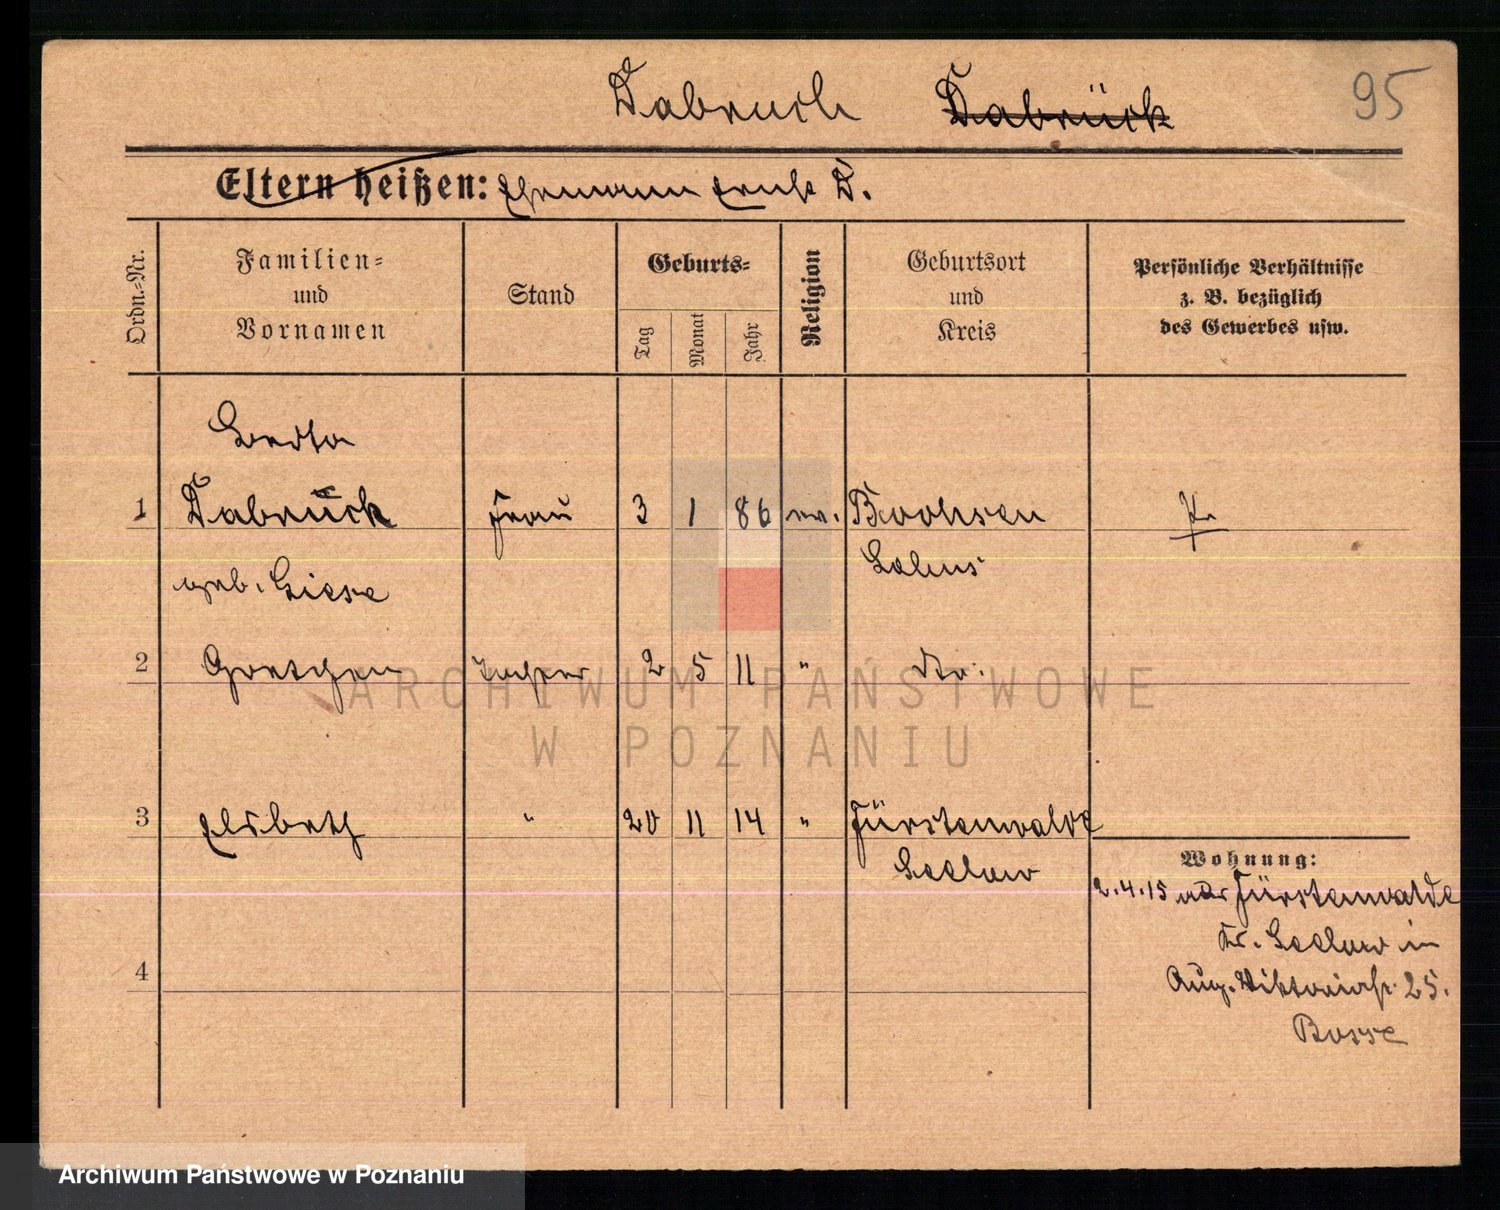 Dabruck Dabrück 95
Eltern heißen: Ehemann Ernst D.
Ordn.-Nr. Familien- und Vornamen Stand Geburts- Tag Monat Jahr Religion Geburtsort und Kreis Persönliche Verhältnisse z. B. bezüglich des Gewerbes usw.
Berta
1 Dabruck Frau 3 1 86 ev. Boohsen Pr.
geb. Giese Lebus
2 Gretchen Tochter 2 5 11 " do.
ARCHIWUM PAŃSTWOWE
W POZNANIU
3 Elsbeth " 20 11 14 " Fürstenwalde
Wohnung:
Seelow
2.4.15 aus Fürstenwalde
Kr. Seelow in
4 Aug. Viktoriastr. 25.
Bosse
Archiwum Państwowe w Poznaniu